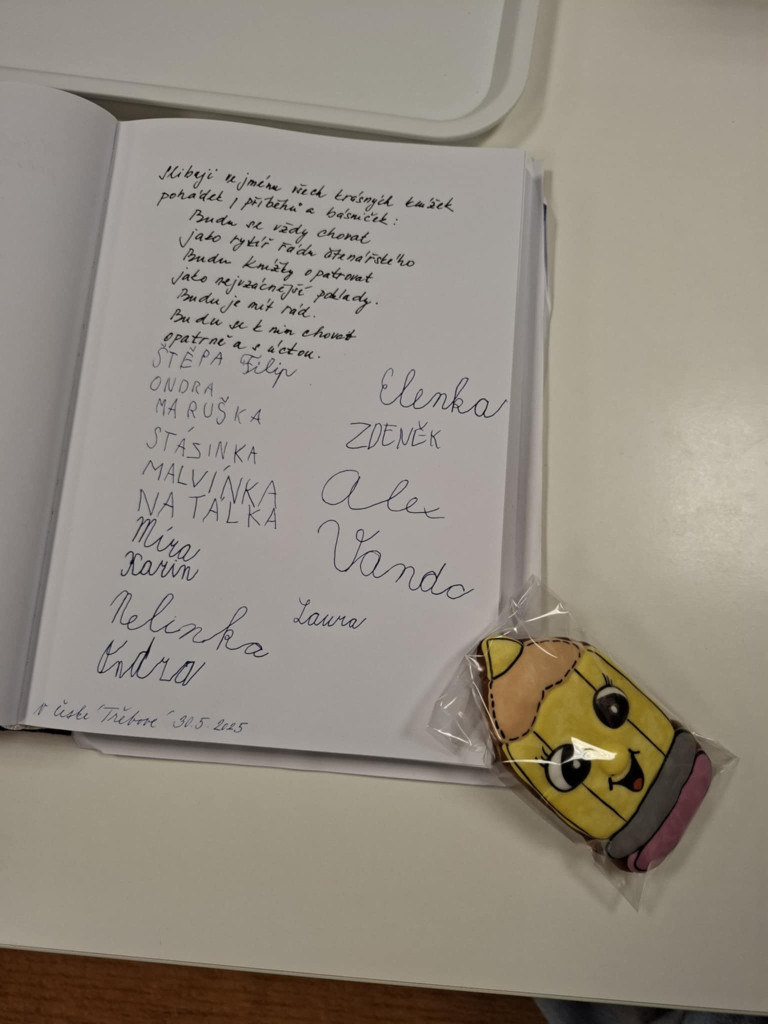 Slibuji ve jménu všech krásných knížek
pohádek, příběhů a básniček:
Budu se vždy chovat
jako rytíř řádu čtenářského
Budu knížky opatrovat
jako nejvzácnější poklady.
Budu je mít rád.
Budu se k nim chovat
opatrně a s úctou.
ŠTĚPA Filip
ONDRA
MARUŠKA
STÁSINKA
MALVÍNKA
NATÁLKA
Míra
Karin
Nelinka
Ondra
Elenka
ZDENĚK
Alex
Vanda
Laura
V České Třebové 30.5.2025